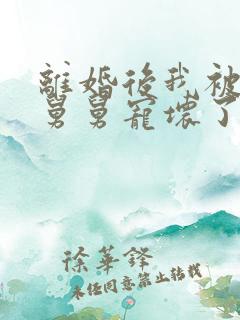 離婚後我被
舅舅寵壞了
徐華鋒
未經同意禁止轉載